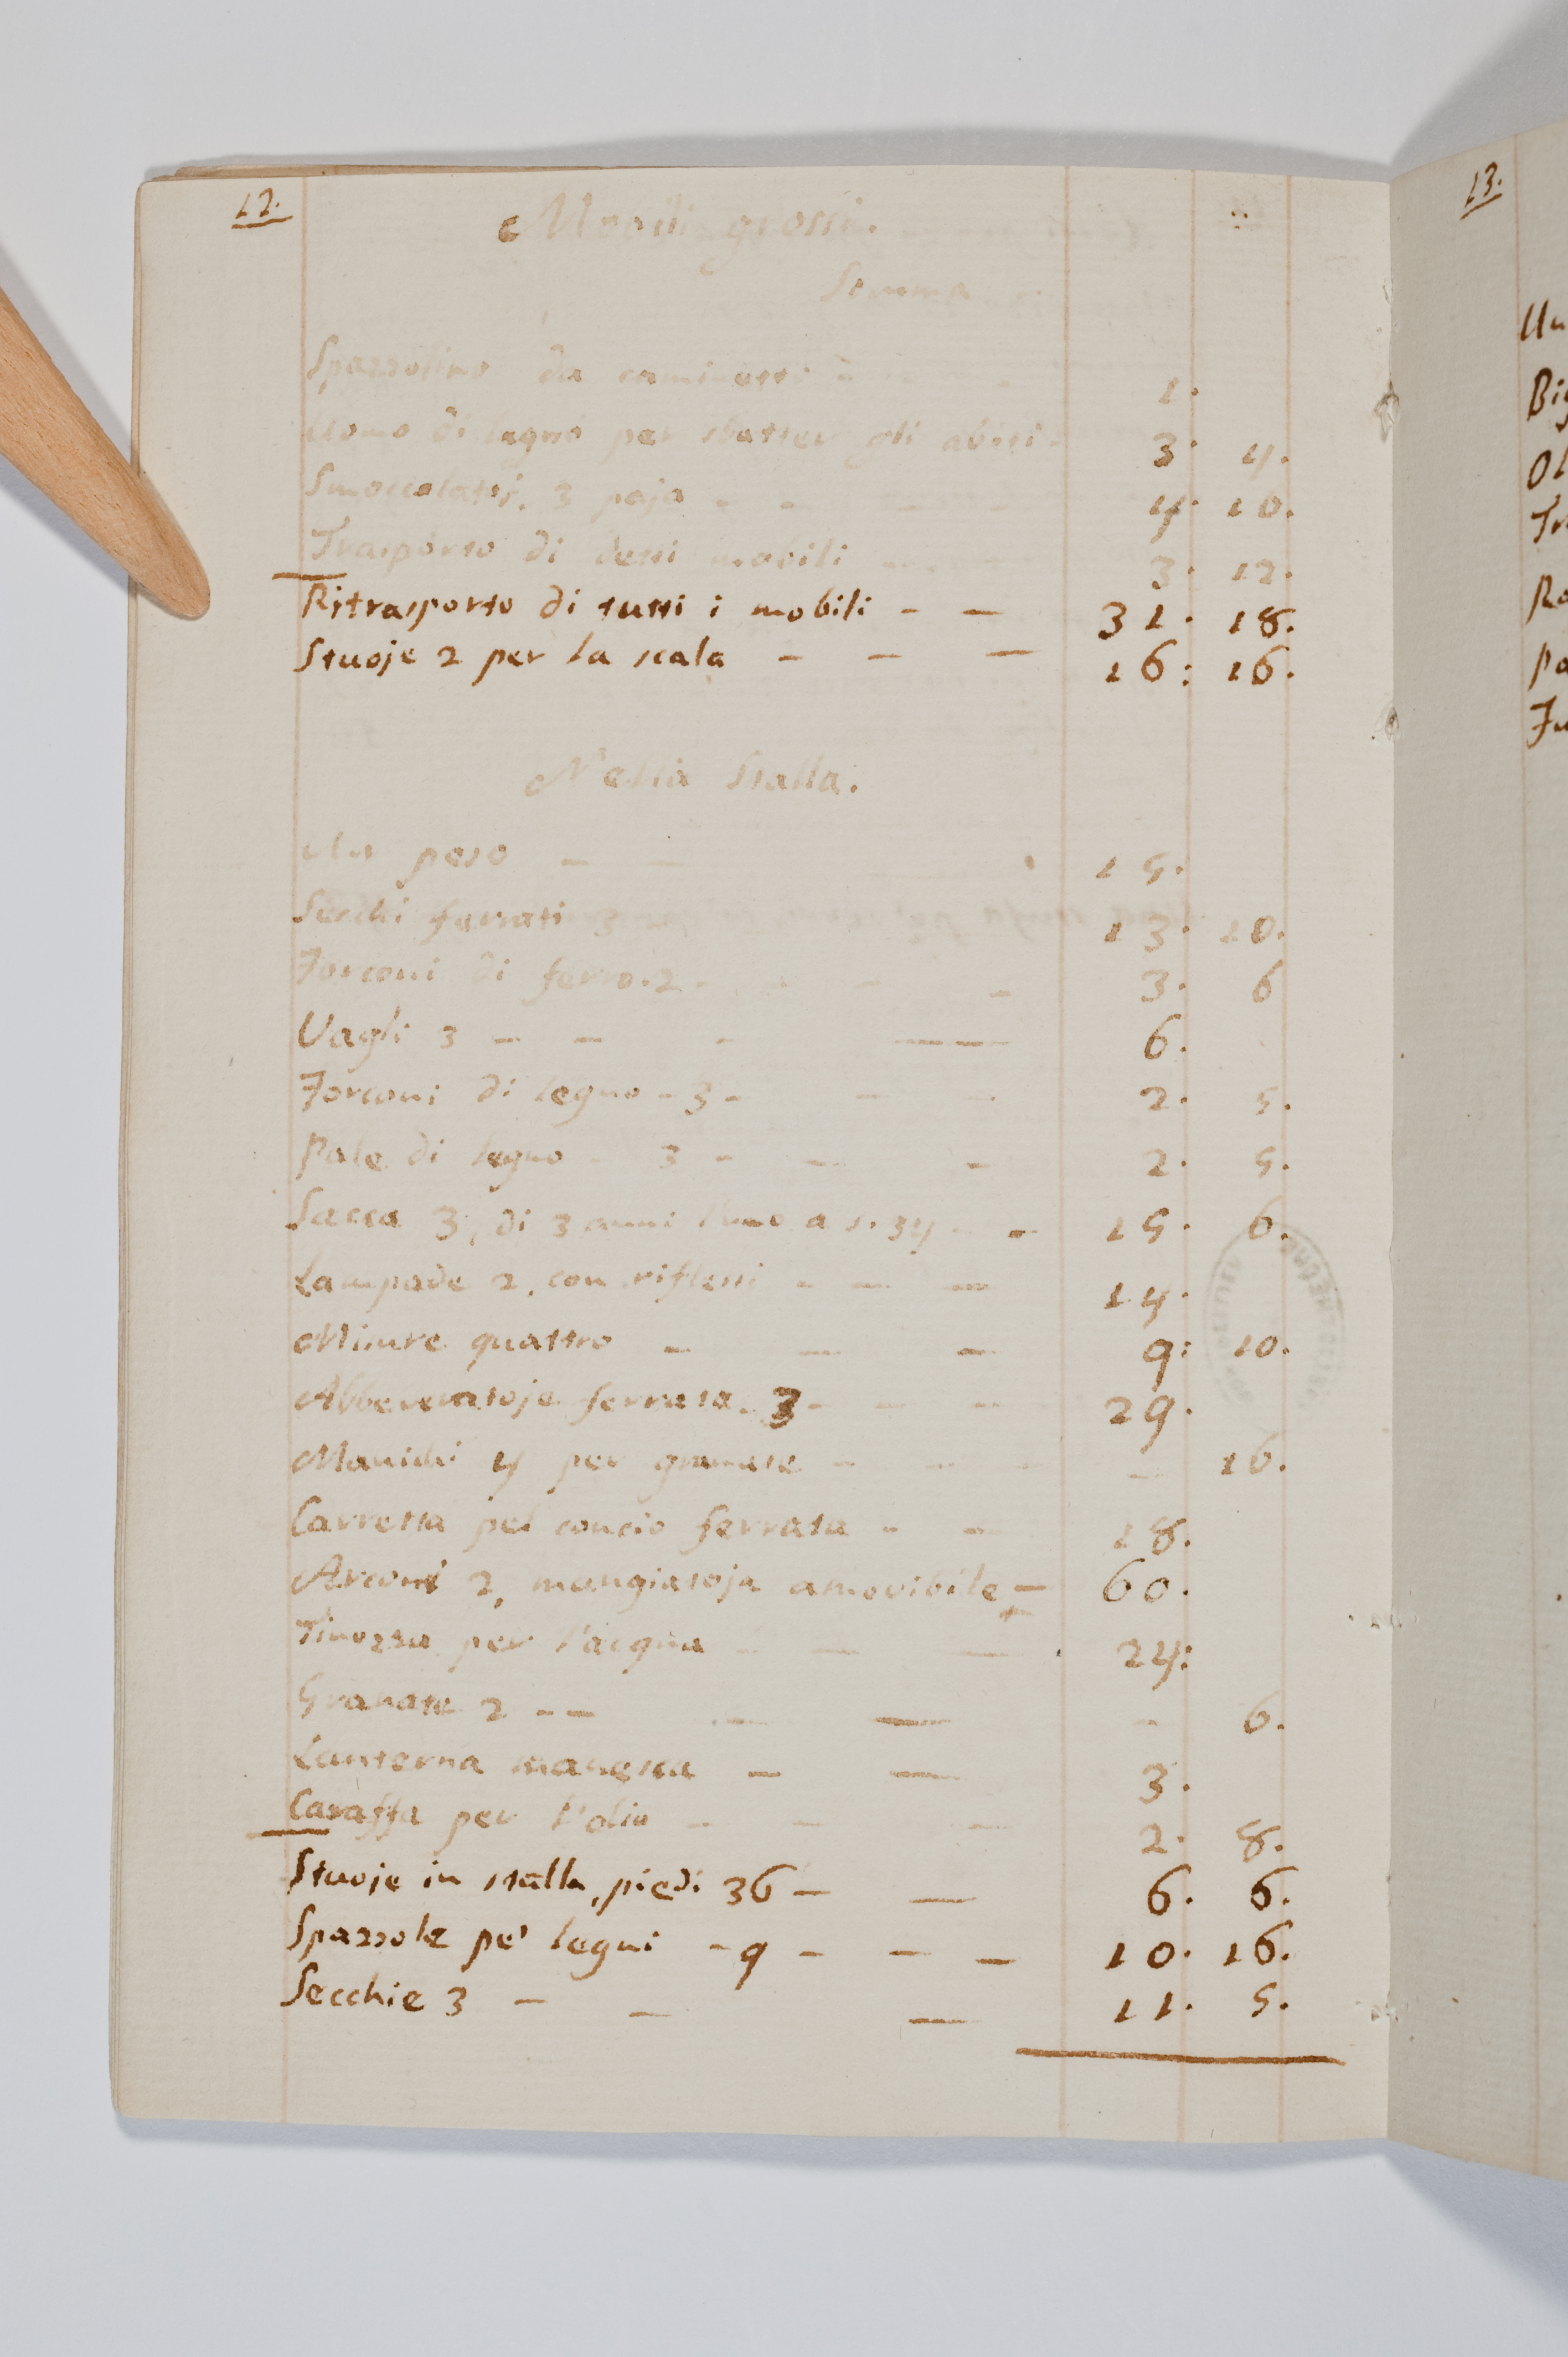 12.
Mobili grossi.
Somma
Spazzolino da caminetti - 1.
Uomo di legno per sbatter gli abiti. 3. 4.
Smoccolatoj. 3 paja - - 4. 10.
Trasporto di detti mobili 3. 12.
Ritrasporto di tutti i mobili - - 31. 18.
Stuoje 2 per la scala - - - 16: 16.
Nella Stalla.
Un peso - - 15.
Secchi ferrati 3 13. 10.
Forconi di ferro. 2. - - - 3. 6
Vagli 3 - - - - 6.
Forconi di legno - 3 - - - 2. 5.
Pale di legno - 3 - - - 2. 5.
Sacca 3, di 3 anni l'uno a s. 34 - - 15. 6.
Lampade 2. con riflessi - - - 14.
Misure quattro - - - 9: 10.
Abbeveratoje ferrata. 3 - - - 29.
Manichi 4 per granate - - - - 16.
Carretta pel concio ferrata - - 18.
Arconi 2, mangiatoja amovibile - 60.
Tinozza per l'acqua - - - 24:
Granate 2 - - - - - 6.
Lanterna manesca - - 3.
Caraffa per l'olio - - - 2. 8.
Stuoje in stalla, piedi 36 - - 6. 6.
Spazzole pe' legni - 9 - - - 10. 16.
Secchie 3 - - - 11. 5.
13.
Un
Bi
Ol
Tr
Ro
Pa
Fu